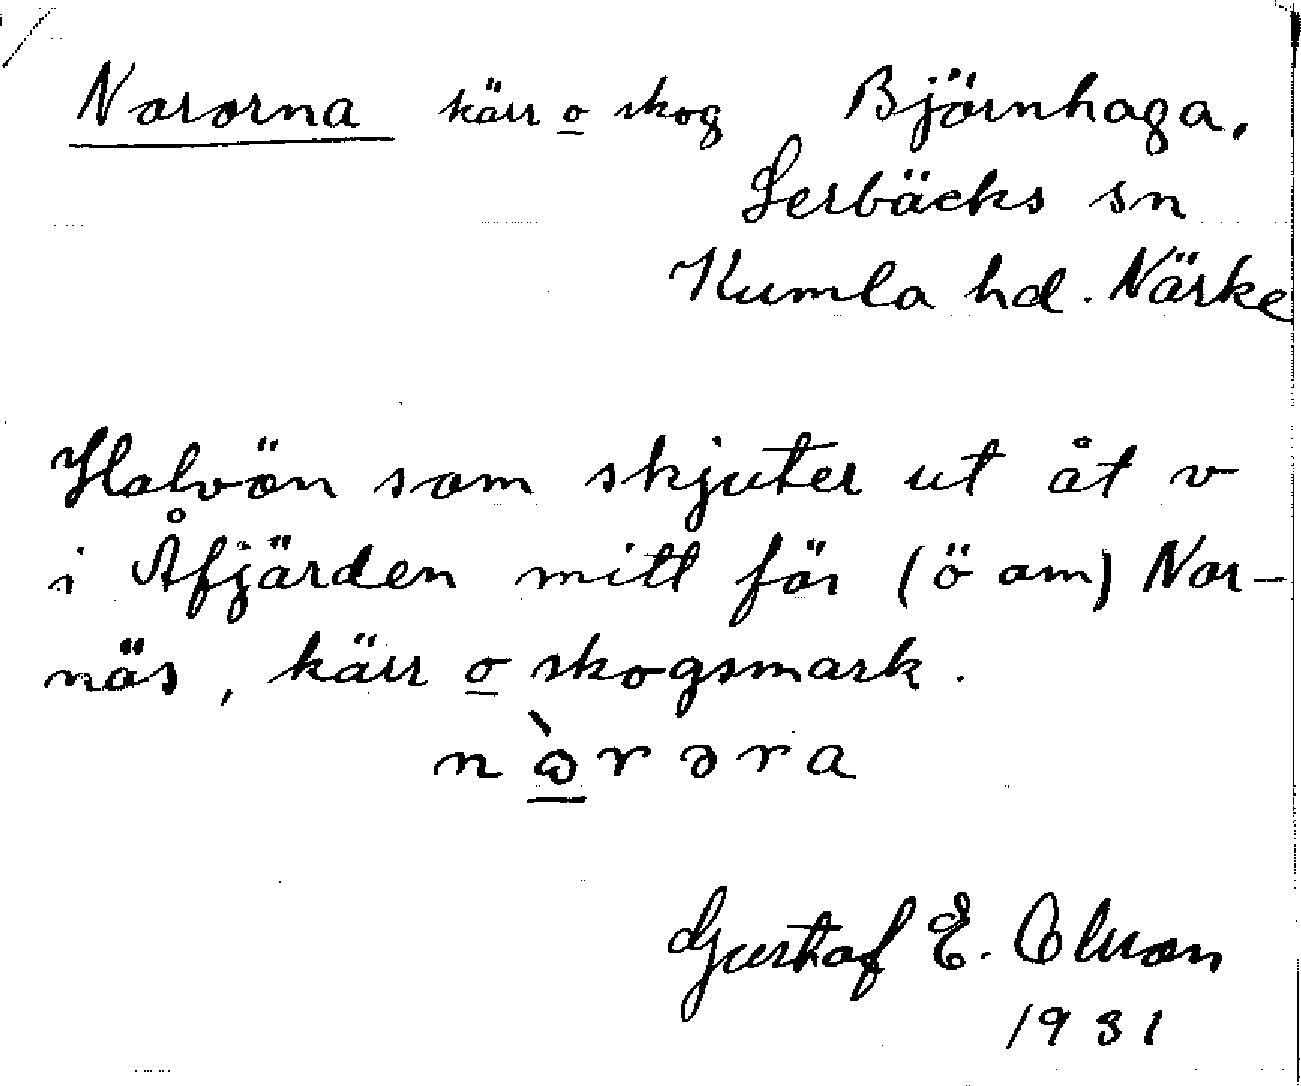 Nororna kärr o skog Björnhaga,
Lerbäcks sn
Kumla hd. Närke
Halvön som skjuter ut åt v
i Åfjärden mitt för (ö om) Nor-
näs, kärr o skogsmark.
Gustaf E. Olsson
1931